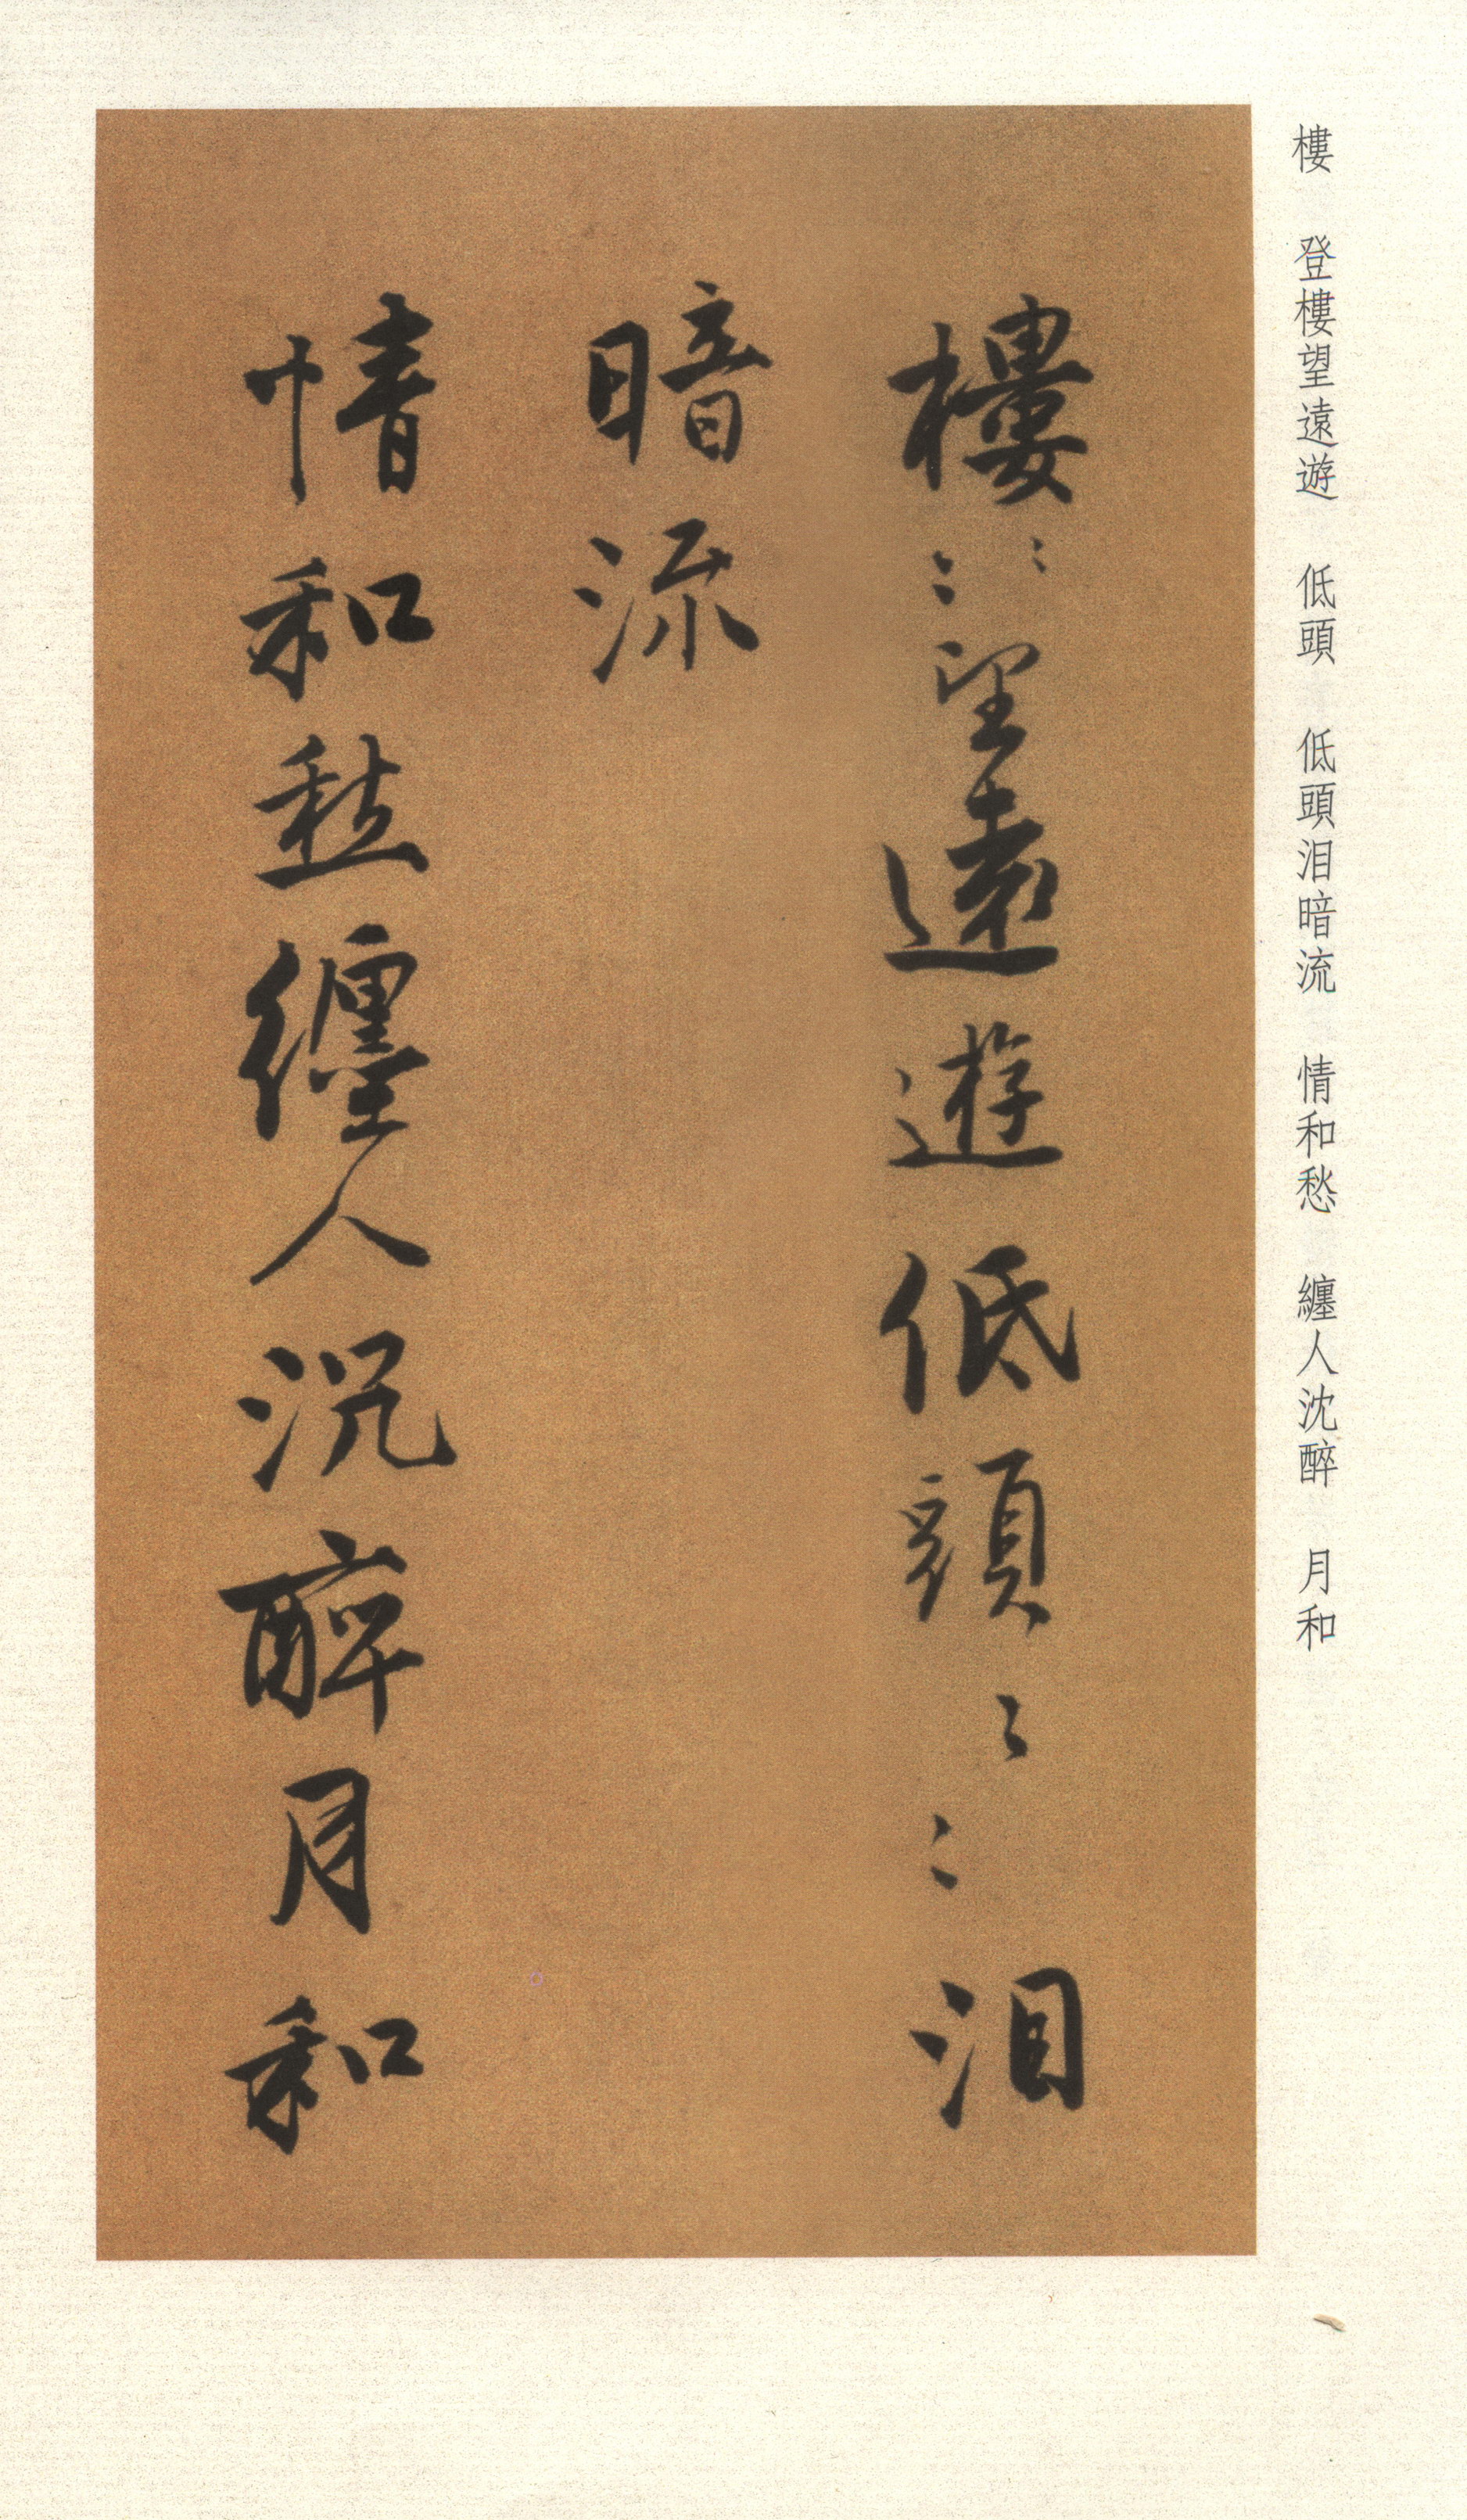 樓 登樓望遠遊 低頭 低頭泪暗流 情和愁 纏人沈醉 月和
樓〻〻望遠遊低頭〻〻泪
暗流
情和愁纏人沉醉月和